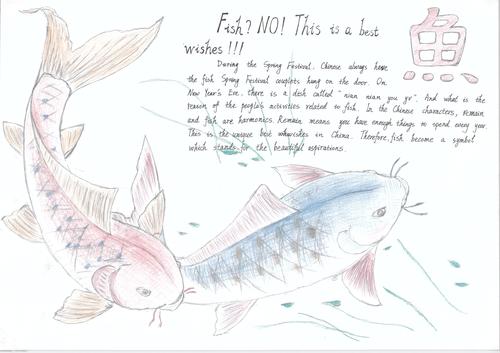 Fish? NO! This is a best
wishes!!!
魚
During the Spring Festival. Chinese always have
the fish Spring Festival couplets hang on the door. On
New Year's Eve, there is a desh called "nian nian you yu". And what is the
reason of the people's activities related to fish. In the Chinese characters, remain
and fish are harmonics. Remain means you have enough things to spend every year.
This is the unique best wishes in China. Therefore, fish become a symbol
which stands for the beautiful aspirations.